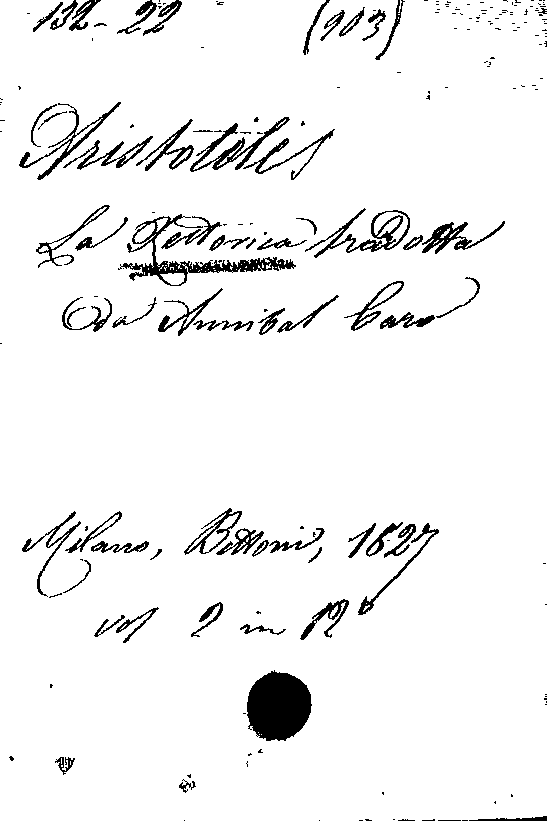 132-22 (903)
Aristotelis
La Rettorica tradotta
da Annibal Caro
Milano, Bettoni, 1827
vol 2 in 12°